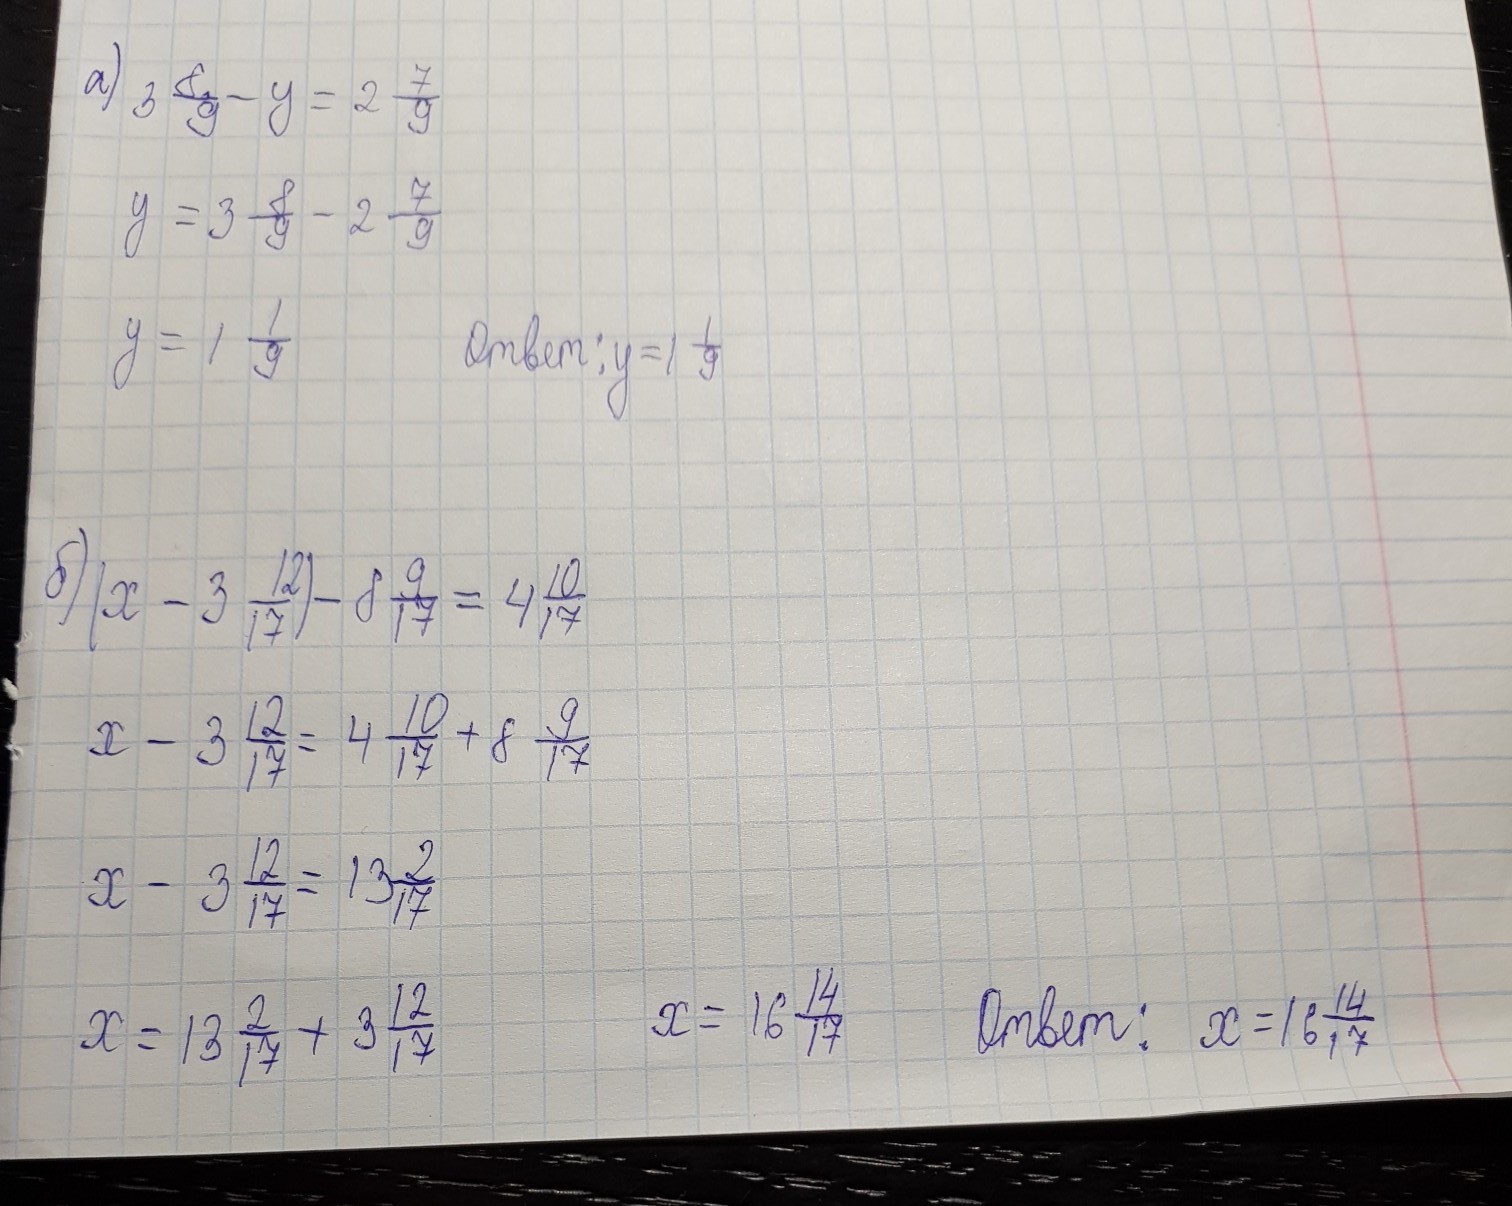 а) 3 8/9 - y = 2 7/9
y = 3 8/9 - 2 7/9
y = 1 1/9 Ответ: y = 1 1/9
б) (x - 3 12/17) - 8 9/17 = 4 10/17
x - 3 12/17 = 4 10/17 + 8 9/17
x - 3 12/17 = 13 2/17
x = 13 2/17 + 3 12/17 x = 16 14/17 Ответ: x = 16 14/17